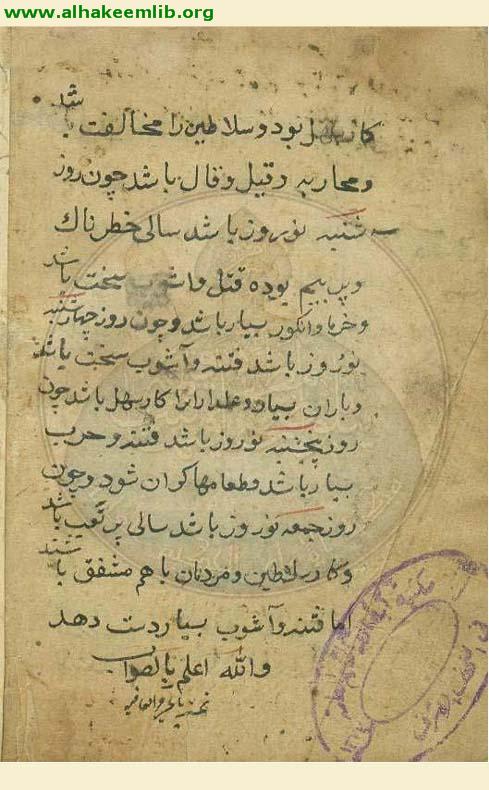 www.alhakeemlib.org
کار سهل بود و سلاطین را مخالفت باشد
و محاربه و قیل و قال باشد چون روز
سه شنبه نوروز باشد سالی خطرناک
و پر بیم بوده قتل و آشوب سخت باشد
و خرما و انکور بسیار باشد و چون روز چهارشنبه
نوروز باشد فتنه و آشوب سخت باشد
و باران بسیار و غلدارانرا کار سهل باشد چون
روز پنجشنبه نوروز باشد فتنه و حرب
بسیار باشد و طعامها کران شود و چون
روز جمعه نوروز باشد سالی پر تعب باشد
و کار سلاطین و مردمان با هم مشفق باشند
اما فتنه و آشوب بسیار دست دهد
والله اعلم بالصواب